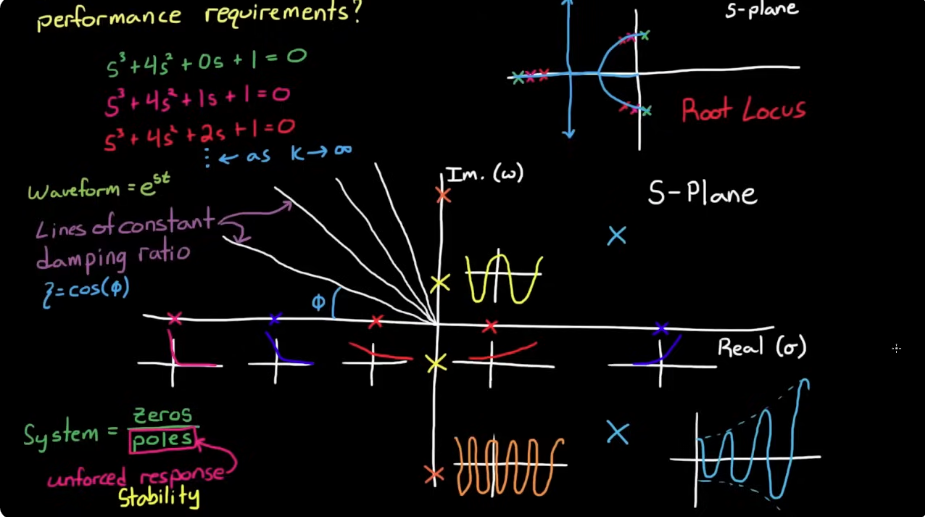 performance requirements?
s³+4s²+0s+1=0
s³+4s²+1s+1=0
s³+4s²+2s+1=0
⋮ ← as k→∞
S-plane
Root Locus
Waveform = e^st
Lines of constant
damping ratio
ζ=cos(ϕ)
ϕ
Im. (ω)
S-Plane
Real (σ)
System = zeros
poles
unforced response
Stability